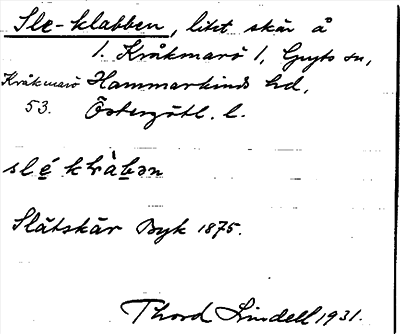 Sle-klabben, litet skär å
1. Kråkmarö 1, Gryts sn,
Kråkmarö Hammarkinds hd,
53. Östergötl. l.
Slätskär Byk 1875.
Thord Lindell 1931.